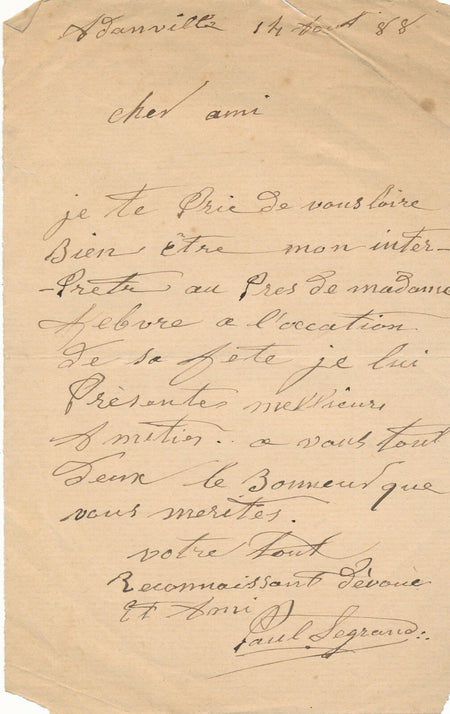 Adanville 14 Aout 88
cher ami
je te Prie de vousloire
Bien être mon inter-
-Prette au Pres de madame
Febvre a l'occation
de sa fete je lui
Présentes meillieurs
Amitiés.. a vous tout
Deux le Bonneur que
vous merites.
votre tout
Reconnaissant dévoué
Et Ami
Paul Legrand